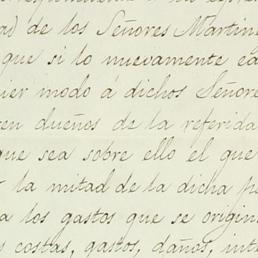 de los Señores Martine
que si lo nuevamente ea
ier modo á dichos Señore
en dueños de la referida
que sea sobre ello el que
la mitad de la dicha p
a los gastos que se origin
s costas, gastos, daños, int